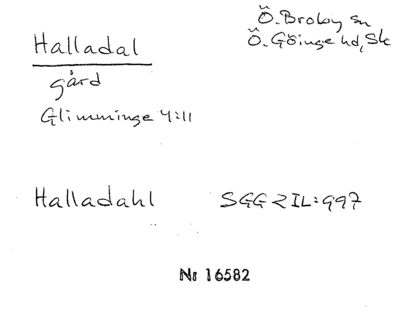 Halladal
Ö. Broby sn
Ö. Göinge hd, Sk
gård
Glimminge 4:11
Halladahl SGG 2 IL:997
Nr 16582